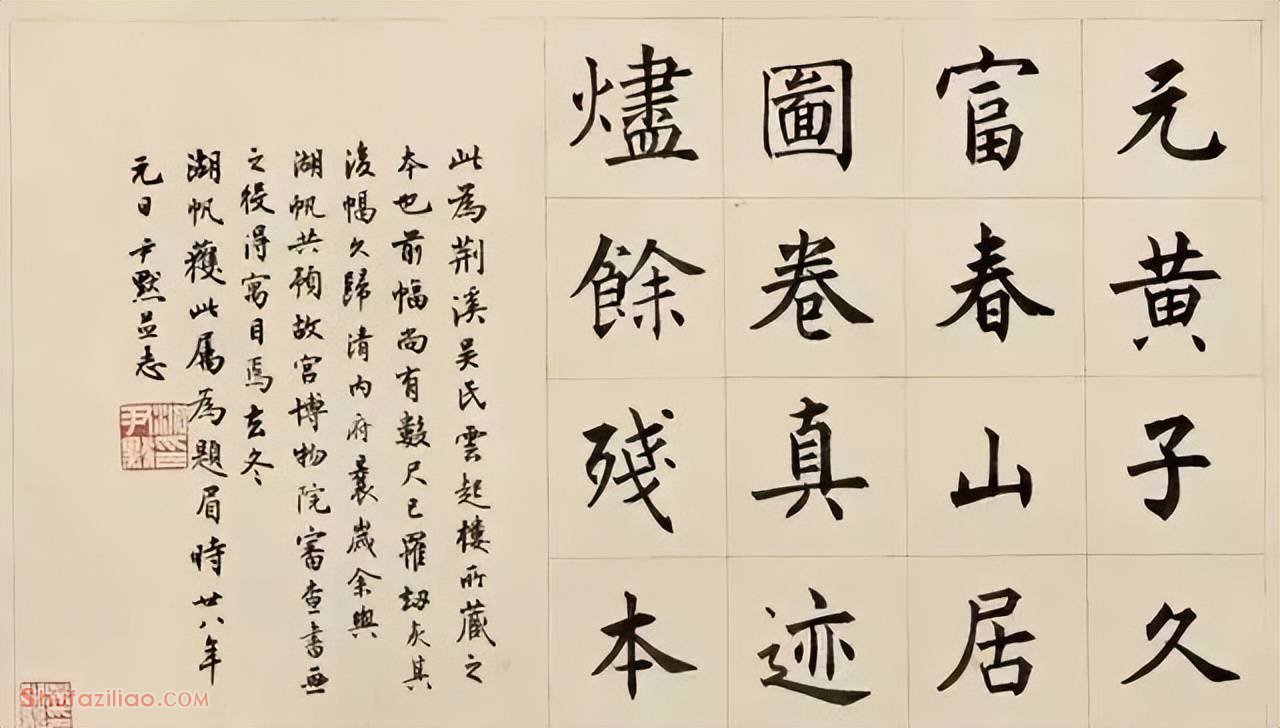 元黄子久
富春山居
圖卷真迹
燼餘殘本
此為荆溪吴氏雲起樓所藏之
本也前幅尚有數尺已罹劫灰其
後幅久歸清内府曩歲余與
湖帆共預故宫博物院審查書畫
之役得寓目焉去冬
湖帆獲此属為題眉時廿八年
元日尹默並志
Shufaziliao.COM